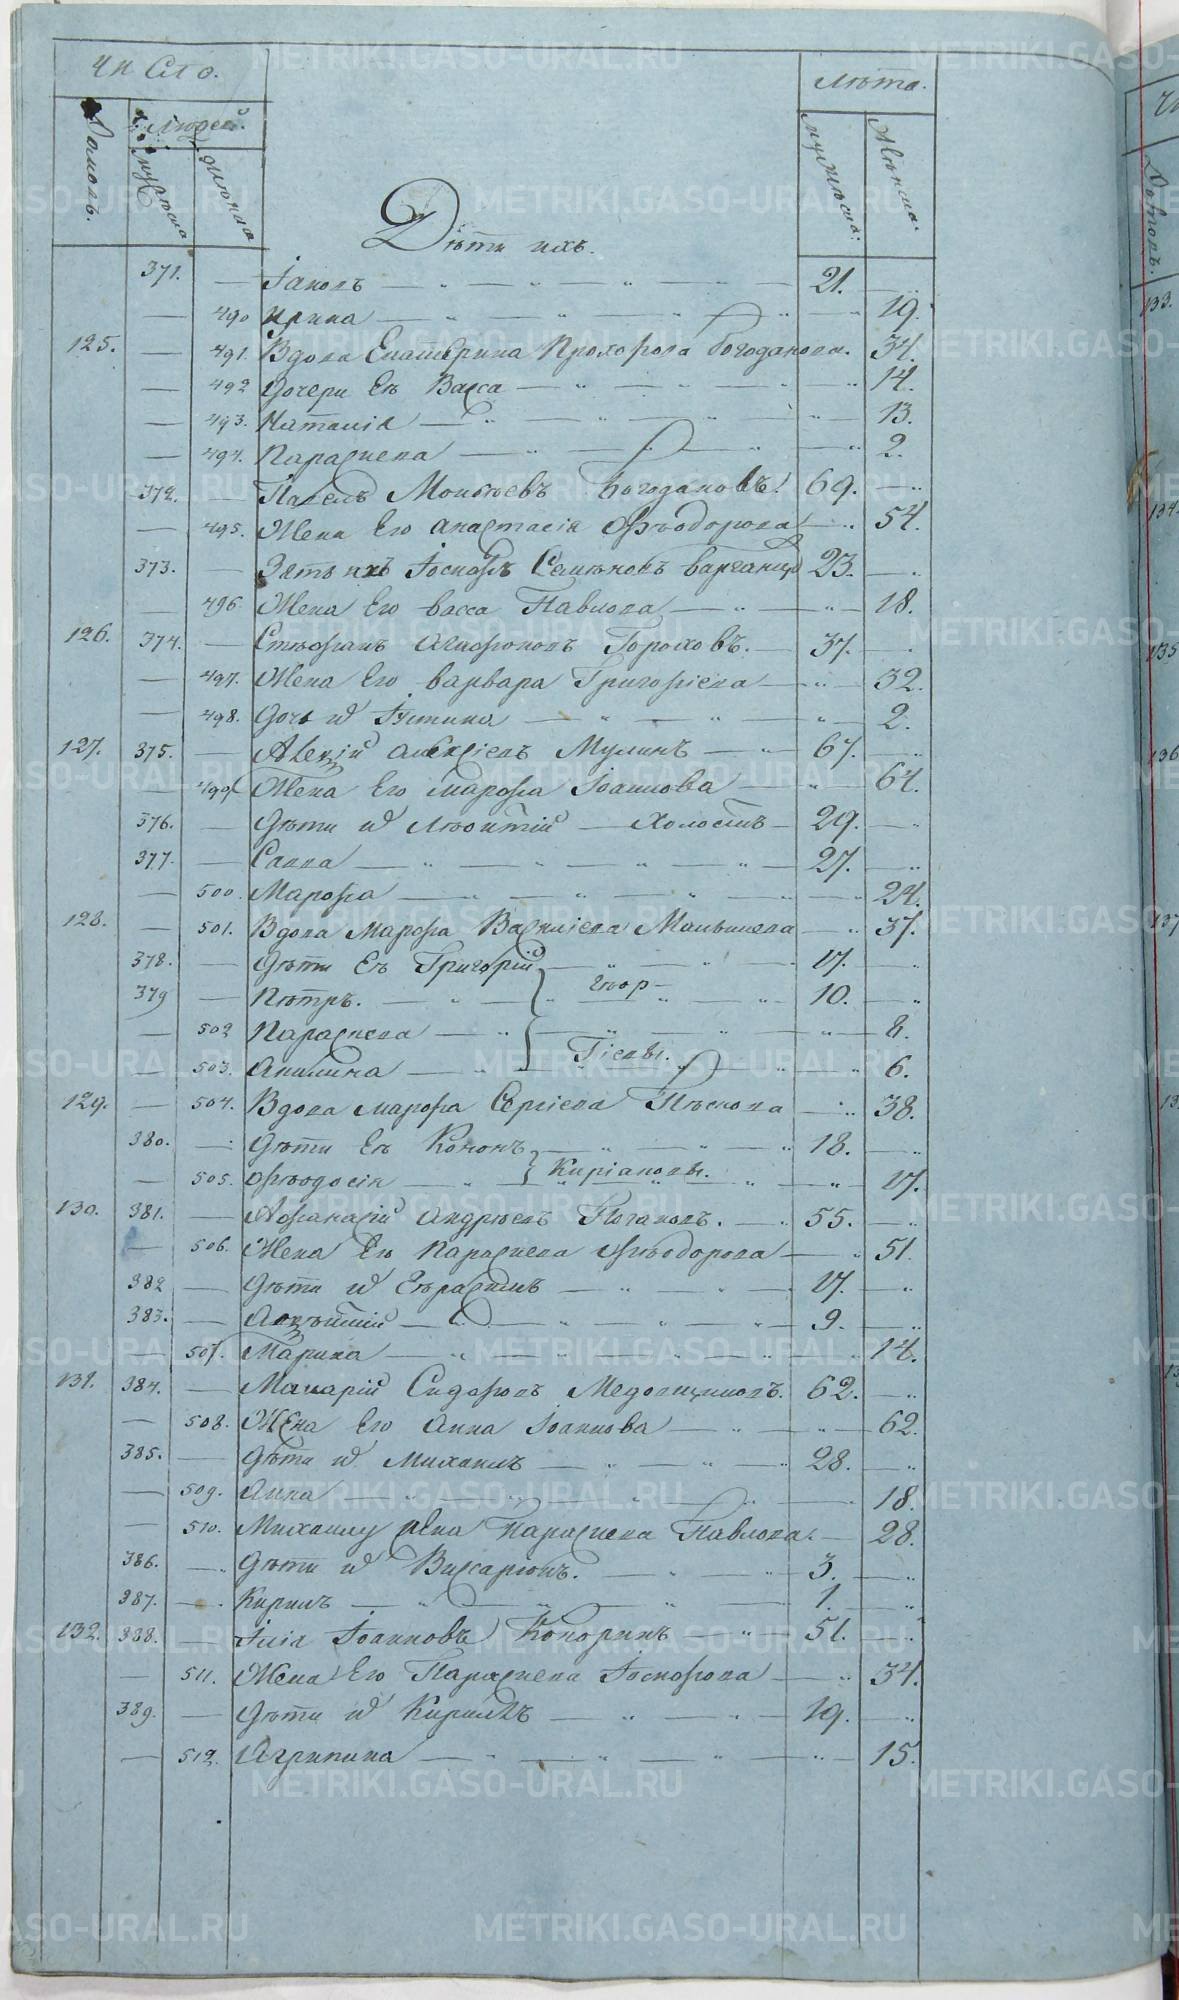 Число.
Домовъ.
Людей.
мужеска
женска
Лѣта.
мужеска.
женска.
Дѣти ихъ.
371. — Іаковъ — 21. —
— 490 Ирина — 19.
125. — 491. Вдова Екатерина Прохорова Богоданова. 34.
— 492 Дочери Ея Васса — 14.
— 493. Наталія — 13.
— 494. Параскева — 2.
372. — Павелъ Моисеевъ Богодановъ. 69. —
— 495. Жена Его Анастасія Ѳеодорова — 54.
373. — Зять ихъ Іосифъ Семеновъ 23. —
— 496. Жена Его Васса Павлова — 18.
126. 374. — Стефанъ Агафоновъ Гороховъ. — 37. —
— 497. Жена Его Варвара Григоріева — 32.
— 498. Дочь их Іустина — 2.
127. 375. — Алексій Алексіевъ Мулинъ — 67. —
— 499. Жена Его Марфа Іоаннова — 64.
376. — Дѣти их Леонтій — Холостъ — 29. —
377. — Савва — 27. —
— 500. Марфа — 24.
128. — 501. Вдова Марфа Василіева Манькева — 37.
378. — Дѣти Ея Григорій — 17. —
379 — Петръ. — Геор- 10. —
— 502 Параскева — 8.
гіевы.
— 503. Акилина — 6.
129. — 504. Вдова Марфа Сергіева Пѣскова — 38.
380. — Дѣти Ея Кононъ — 18. —
— 505. Ѳеодосія — Киріановы. — 17.
130. 381. — Аѳанасій Андреевъ Потаповъ. — 55. —
— 506. Жена Его Параскева Ѳеодорова — 51.
382 — Дѣти их Герасимъ — 17. —
383. — — 9. —
— 507. Марина — 14.
131. 384. — Макарій Сидоровъ Медовщиковъ. 62. —
— 508. Жена Его Анна Іоаннова — 62.
385. — Дѣти их Михаилъ — 28. —
— 509. Анна — 18.
— 510. Михаилу жена Параскева Павлова. — 28.
386. — Дѣти их Виссаріонъ. — 3. —
387. — Кирилъ — 1. —
132. 388. — Илія Іоанновъ Кокоринъ — 51. —
— 511. Жена Его Параскева Іосифова — 34.
389. — Дѣти их Кириллъ — 19. —
— 512. Агрипина — 15.
133.
134.
135
136
137
METRIKI.GASO-URAL.RU